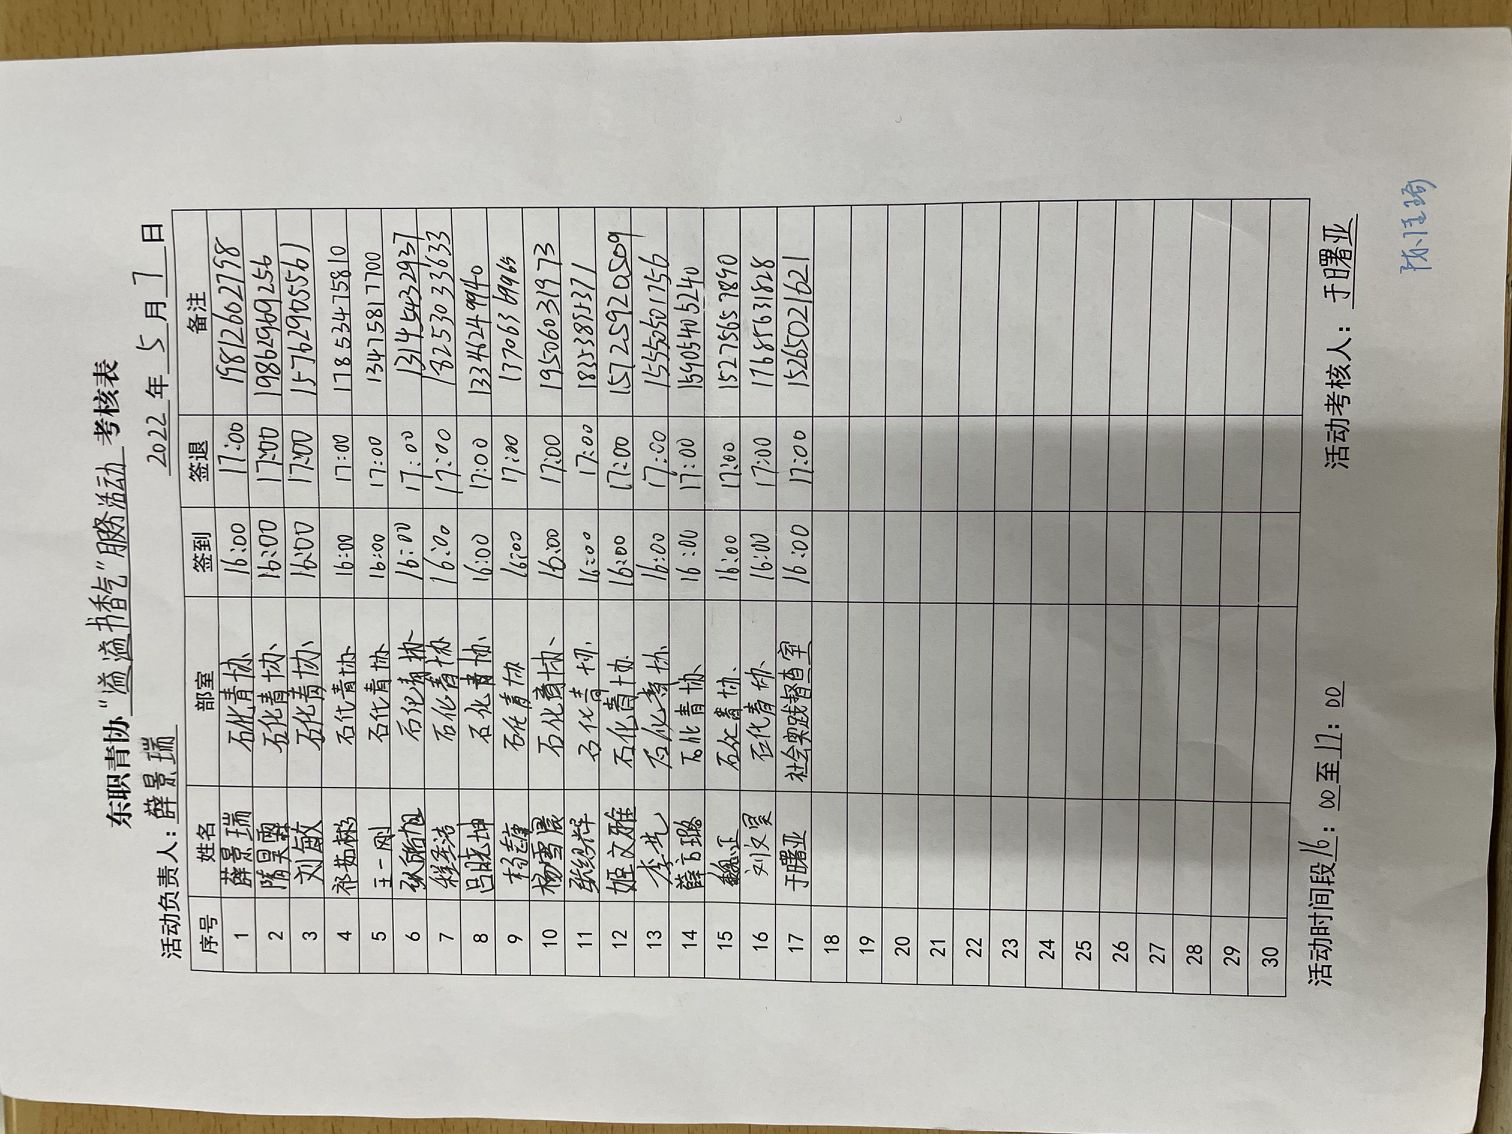 东职青协“溢溢书香气”服务活动 考核表
活动负责人：薛景瑞 2022年5月7日
序号 姓名 部室 签到 签退 备注
1 薛景瑞 石化青协 16:00 17:00 19812602798
2 隋昊霖 石化青协、 16:00 17:00 19862969256
3 刘敏 石化青协、 16:00 17:00 15762905561
4 祁茹彬 石化青协 16:00 17:00 17853475810
5 王一刚 石化青协 16:00 17:00 13475817700
6 石化青协 16:00 17:00
7 程子浩 石化青协 16:00 17:00 18253033633
8 吕晓坤 石化青协、 16:00 17:00 13346249940
9 石化青协 16:00 17:00 13706369965
10 杨雪晨 石化青协、 16:00 17:00 19506031973
11 张绍辉 石化青协、 16:00 17:00 18353835371
12 姬文雅 石化青协、 16:00 17:00 15725920509
13 石化青协、 16:00 17:00 15550501256
14 薛方璐 石化青协 16:00 17:00 15905405240
15 魏正 石化青协、 16:00 17:00 15275657890
16 刘文昊 石化青协、 16:00 17:00 17685631828
17 于曙亚 社会实践督查室 16:00 17:00 15265021621
18
19
20
21
22
23
24
25
26
27
28
29
30
活动时间段16：00至17：00 活动考核人：于曙亚